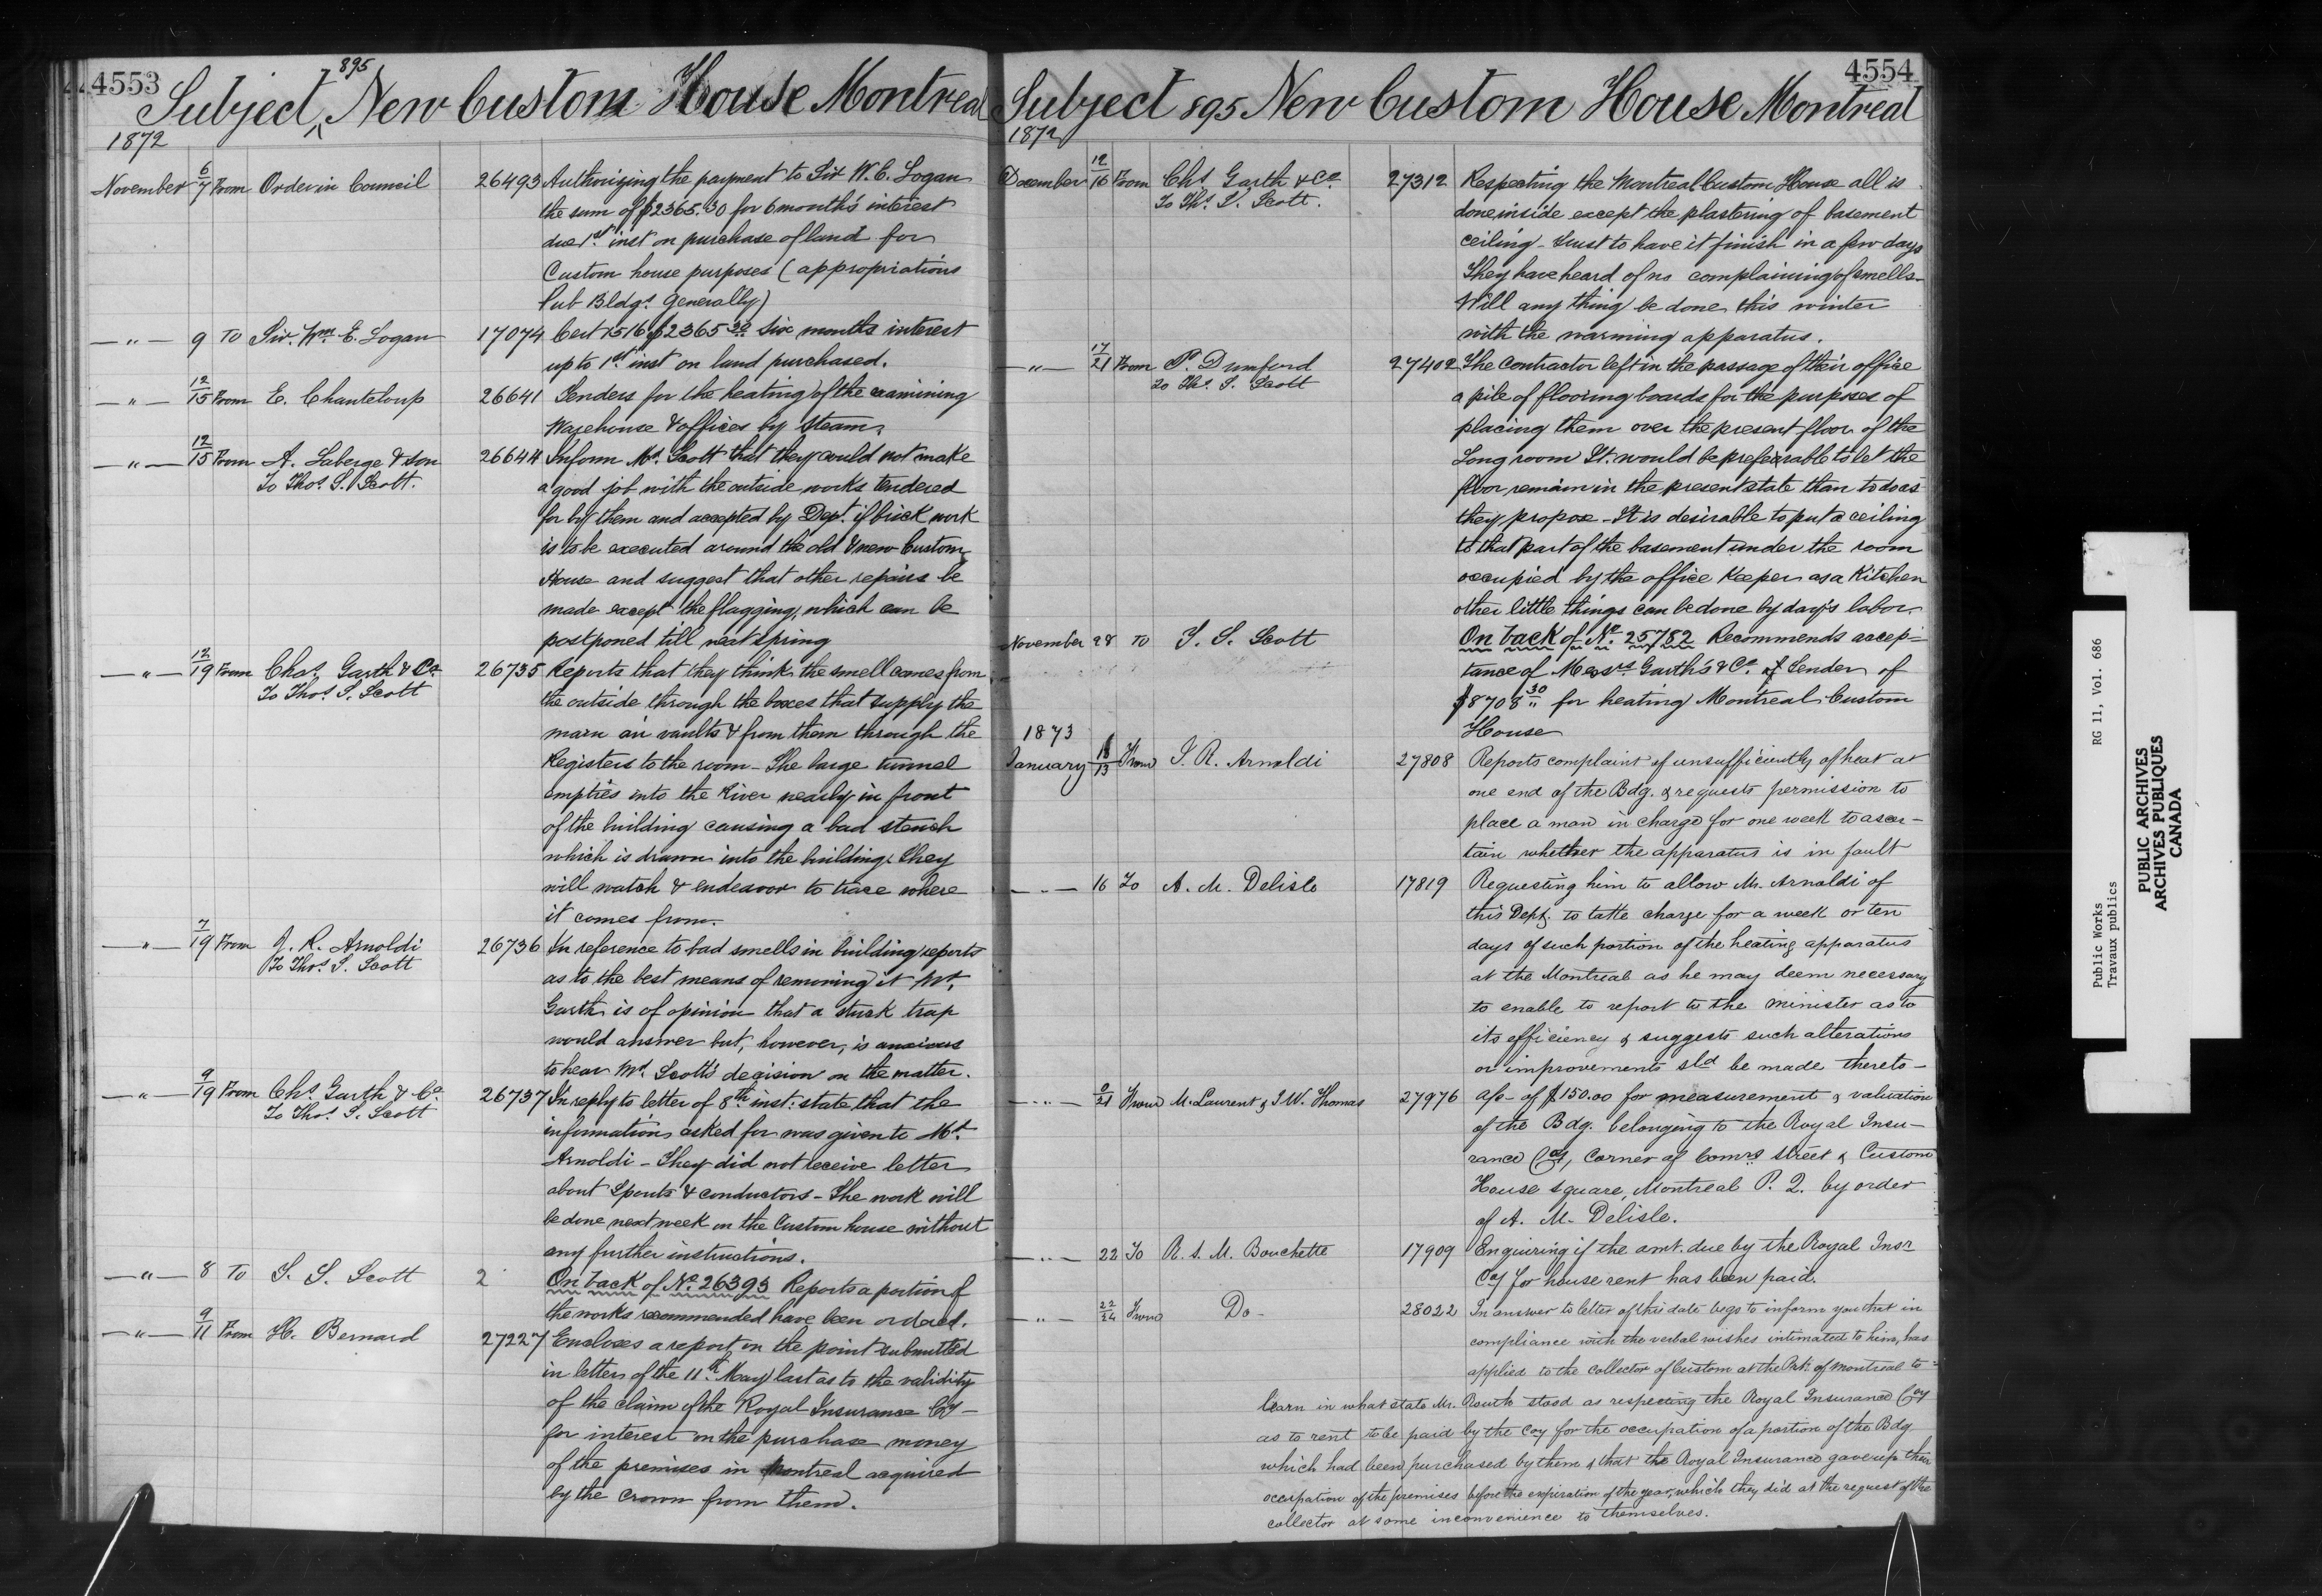 4553
Subject 895 New Custom House Montreal
1872
November 6/7 From Order in Council 26493 Authorizing the payment to Sir W. E. Logan
the sum of $2365.30 for 6 month's interest
due 1st inst on purchase of land for
Custom house purposes (appropriations
Pub Bldgs. generally)
—"— 9 To Sir Wm. E. Logan 17074 Cert 1516 $2365 30 Six months interest
up to 1st inst on land purchased.
—"— 12/15 From E. Chanteloup 26641 Tenders for the heating of the examining
Warehouse & offices by steam.
—"— 12/15 From A. Laberge & Son 26644 Inform Mr. Scott that they could not make
To Thos. S. Scott. a good job with the outside works tendered
for by them and accepted by Dept. if brick work
is to be executed around the old & new Custom
House and suggest that other repairs be
made except the flagging, which can be
postponed till next spring
—"— 12/19 From Chas. Garth & Co. 26735 Reports that they think the smell comes from
To Thos. S. Scott the outside through the boxes that supply the
main air vaults & from them through the
Registers to the room – The large tunnel
empties into the River nearly in front
of the building causing a bad stench
which is drawn into the building. They
will watch & endeavor to trace where
it comes from.
—"— 7/19 From J. R. Arnoldi 26736 In reference to bad smells in building reports
To Thos. S. Scott as to the best means of removing it Mr.
Garth is of opinion that a trap
would answer but, however, is anxious
to hear Mr. Scott's decision on the matter.
—"— 9/19 From Chs. Garth & Co. 26737 In reply to letter of 8th inst: state that the
To Thos. S. Scott informations asked for was given to Mr.
Arnoldi – They did not receive letter
about Spouts & conductors – The work will
be done next week on the Custom house without
any further instructions.
—"— 8 To T. S. Scott 2 On back of No. 26393 Reports a portion of
the works recommended have been ordered.
—"— 9/11 From H. Bernard 27227 Encloses a report on the point submitted
in letter of the 11th May last as to the validity
of the claim of the Royal Insurance Coy –
for interest on the purchase money
of the premises in Montreal acquired
by the Crown from them.
4554
Subject 895 New Custom House Montreal
1872
December 12/16 From Chs. Garth & Co. 27312 Respecting the Montreal Custom House all is
To Ths. S. Scott. done inside except the plastering of basement
ceiling – trust to have it finish in a few days
They have heard of no complaining of smells –
Will any thing be done this winter
with the warming apparatus.
—"— 17/21 From P. Durnford 27402 The Contractor left in the passage of their office
To Ths. S. Scott a pile of flooring boards for the purposes of
placing them over the present floor of the
Long room It would be preferable to let the
floor remain in the present state than to do as
they propose – It is desirable to put a ceiling
to that part of the basement under the room
occupied by the office Keeper as a Kitchen
other little things can be done by day's labor.
November 28 To T. S. Scott On back of No. 25782 Recommends accep-
tance of Messrs. Garth's & Co. Tender of
$8708 30 for heating Montreal Custom
House
1873
January 13 From J. R. Arnoldi 27808 Reports complaint of unsufficiently of heat at
one end of the Bdg. & requests permission to
place a man in charge for one week to ascer-
tain whether the apparatus is in fault
—"— 16 To A. M. Delisle 17819 Requesting him to allow Mr. Arnoldi of
this Dept. to take charge for a week or ten
days of such portion of the heating apparatus
at the Montreal as he may deem necessary
to enable to report to the minister as to
its efficiency & suggests such alterations
or improvements sld be made thereto –
—"— 9/21 From M. Laurent & J. W. Thomas 27976 a/c – of $150.00 for measurement & valuation
of the Bdg. belonging to the Royal Insu-
rance Coy, Corner of Comrs street & Custom
House square, Montreal P. Q. by order
of A. M. Delisle.
—"— 22 To R. S. M. Bouchette 17909 Enquiring if the amt. due by the Royal Insr
Coy for house rent has been paid.
—"— 22/24 From Do – 28022 In answer to letter of this date begs to inform you that in
compliance with the verbal wishes intimated to him, has
applied to the collector of Custom at the Prt. of Montreal to
learn in what state Mr. Routh stood as respecting the Royal Insurance Coy
as to rent to be paid by the Coy for the occupation of a portion of the Bdg
which had been purchased by them & that the Royal Insurance gave up their
occupation of the premises before the expiration of the year, which they did at the request of the
collector at some inconvenience to themselves.
Public Works RG 11, Vol. 686
Travaux publics
PUBLIC ARCHIVES
ARCHIVES PUBLIQUES
CANADA